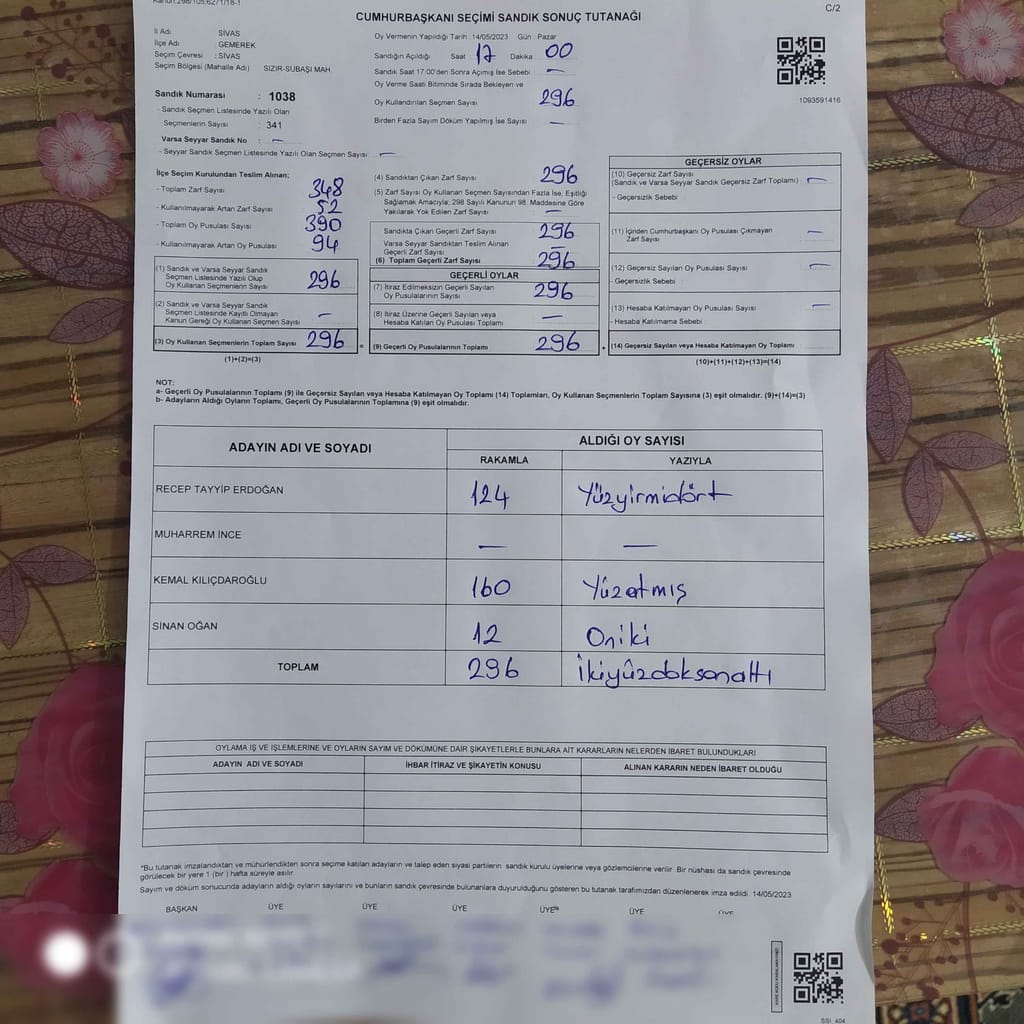 Kanun,298/105,6271/18-1
CUMHURBAŞKANI SEÇİMİ SANDIK SONUÇ TUTANAĞI
C/2
İl Adı SİVAS
İlçe Adı : GEMEREK
Seçim Çevresi : SİVAS
Seçim Bölgesi (Mahalle Adı) SIZIR-SUBAŞI MAH
Sandık Numarası : 1038
- Sandık Seçmen Listesinde Yazılı Olan
Seçmenlerin Sayısı : 341
Varsa Seyyar Sandık No : —
- Seyyar Sandık Seçmen Listesinde Yazılı Olan Seçmen Sayısı : —
Oy Vermenin Yapıldığı Tarih : 14/05/2023 Gün : Pazar
Sandığın Açıldığı Saat : 17 Dakika : 00
Sandık Saat 17:00'den Sonra Açımış İse Sebebi : —
Oy Verme Saati Bitiminde Sırada Bekleyen ve
Oy Kullandırılan Seçmen Sayısı 296
Birden Fazla Sayım Döküm Yapılmış İse Sayısı : —
1093591416
İlçe Seçim Kurulundan Teslim Alınan;
- Toplam Zarf Sayısı 348
- Kullanılmayarak Artan Zarf Sayısı 52
- Toplam Oy Pusulası Sayısı 390
- Kullanılmayarak Artan Oy Pusulası 94
(1) Sandık ve Varsa Seyyar Sandık
Seçmen Listesinde Yazılı Olup
Oy Kullanan Seçmenlerin Sayısı 296
(2) Sandık ve Varsa Seyyar Sandık
Seçmen Listesinde Kayıtlı Olmayan
Kanun Gereği Oy Kullanan Seçmen Sayısı —
(3) Oy Kullanan Seçmenlerin Toplam Sayısı 296
(1)+(2)=(3)
=
(4) Sandıktan Çıkan Zarf Sayısı 296
(5) Zarf Sayısı Oy Kullanan Seçmen Sayısından Fazla İse, Eşitliği
Sağlamak Amacıyla; 298 Sayılı Kanunun 98. Maddesine Göre
Yakılarak Yok Edilen Zarf Sayısı —
Sandıkta Çıkan Geçerli Zarf Sayısı 296
Varsa Seyyar Sandıktan Teslim Alınan
Geçerli Zarf Sayısı —
(6) Toplam Geçerli Zarf Sayısı 296
GEÇERLİ OYLAR
(7) İtiraz Edilmeksizin Geçerli Sayılan
Oy Pusulalarının Sayısı 296
(8) İtiraz Üzerine Geçerli Sayılan veya
Hesaba Katılan Oy Pusulası Toplamı —
(9) Geçerli Oy Pusulalarının Toplamı 296
+
GEÇERSİZ OYLAR
(10) Geçersiz Zarf Sayısı
(Sandık ve Varsa Seyyar Sandık Geçersiz Zarf Toplamı) : —
- Geçersizlik Sebebi
(11) İçinden Cumhurbaşkanı Oy Pusulası Çıkmayan
Zarf Sayısı —
(12) Geçersiz Sayılan Oy Pusulası Sayısı —
- Geçersizlik Sebebi
(13) Hesaba Katılmayan Oy Pusulası Sayısı —
- Hesaba Katılmama Sebebi
(14) Geçersiz Sayılan veya Hesaba Katılmayan Oy Toplamı
(10)+(11)+(12)+(13)=(14)
NOT:
a- Geçerli Oy Pusulalarının Toplamı (9) ile Geçersiz Sayılan veya Hesaba Katılmayan Oy Toplamı (14) Toplamları, Oy Kullanan Seçmenlerin Toplam Sayısına (3) eşit olmalıdır. (9)+(14)=(3)
b- Adayların Aldığı Oyların Toplamı, Geçerli Oy Pusulalarının Toplamına (9) eşit olmalıdır.
ADAYIN ADI VE SOYADI ALDIĞI OY SAYISI
RAKAMLA YAZIYLA
RECEP TAYYİP ERDOĞAN 124 Yüzyirmidört
MUHARREM İNCE — —
KEMAL KILIÇDAROĞLU 160 Yüzatmış
SİNAN OĞAN 12 Oniki
TOPLAM 296 İkiyüzdoksanaltı
OYLAMA İŞ VE İŞLEMLERİNE VE OYLARIN SAYIM VE DÖKÜMÜNE DAİR ŞİKAYETLERLE BUNLARA AİT KARARLARIN NELERDEN İBARET BULUNDUKLARI
ADAYIN ADI VE SOYADI İHBAR İTİRAZ VE ŞİKAYETİN KONUSU ALINAN KARARIN NEDEN İBARET OLDUĞU
*Bu tutanak imzalandıktan ve mühürlendikten sonra seçime katılan adayların ve talep eden siyasi partilerin sandık kurulu üyelerine veya gözlemcilerine verilir. Bir nüshası da sandık çevresinde
görülecek bir yere 1 (bir) hafta süreyle asılır.
Sayım ve döküm sonucunda adayların aldığı oyların sayılarını ve bunların sandık çevresinde bulunanlara duyurulduğunu gösteren bu tutanak tarafımızdan düzenlenerek imza edildi. 14/05/2023
BAŞKAN ÜYE ÜYE ÜYE ÜYE ÜYE ÜYE
SSI 404